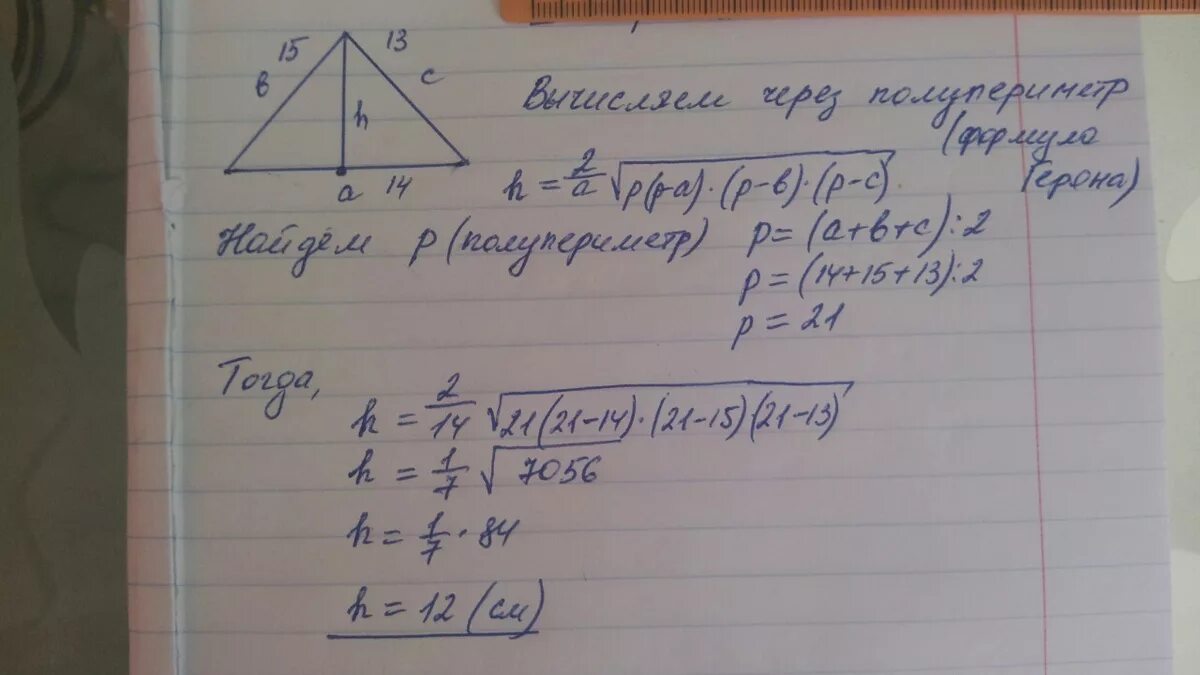 15 13
в c
h
a 14
Вычисляем через полупериметр
(формула Герона)
h = 2/a √p(p-a)·(p-в)·(p-c)
Найдём p (полупериметр) p = (a+в+c):2
p = (14+15+13):2
p = 21
Тогда,
h = 2/14 √21(21-14)·(21-15)(21-13)
h = 1/7 √7056
h = 1/7 · 84
h = 12 (см)